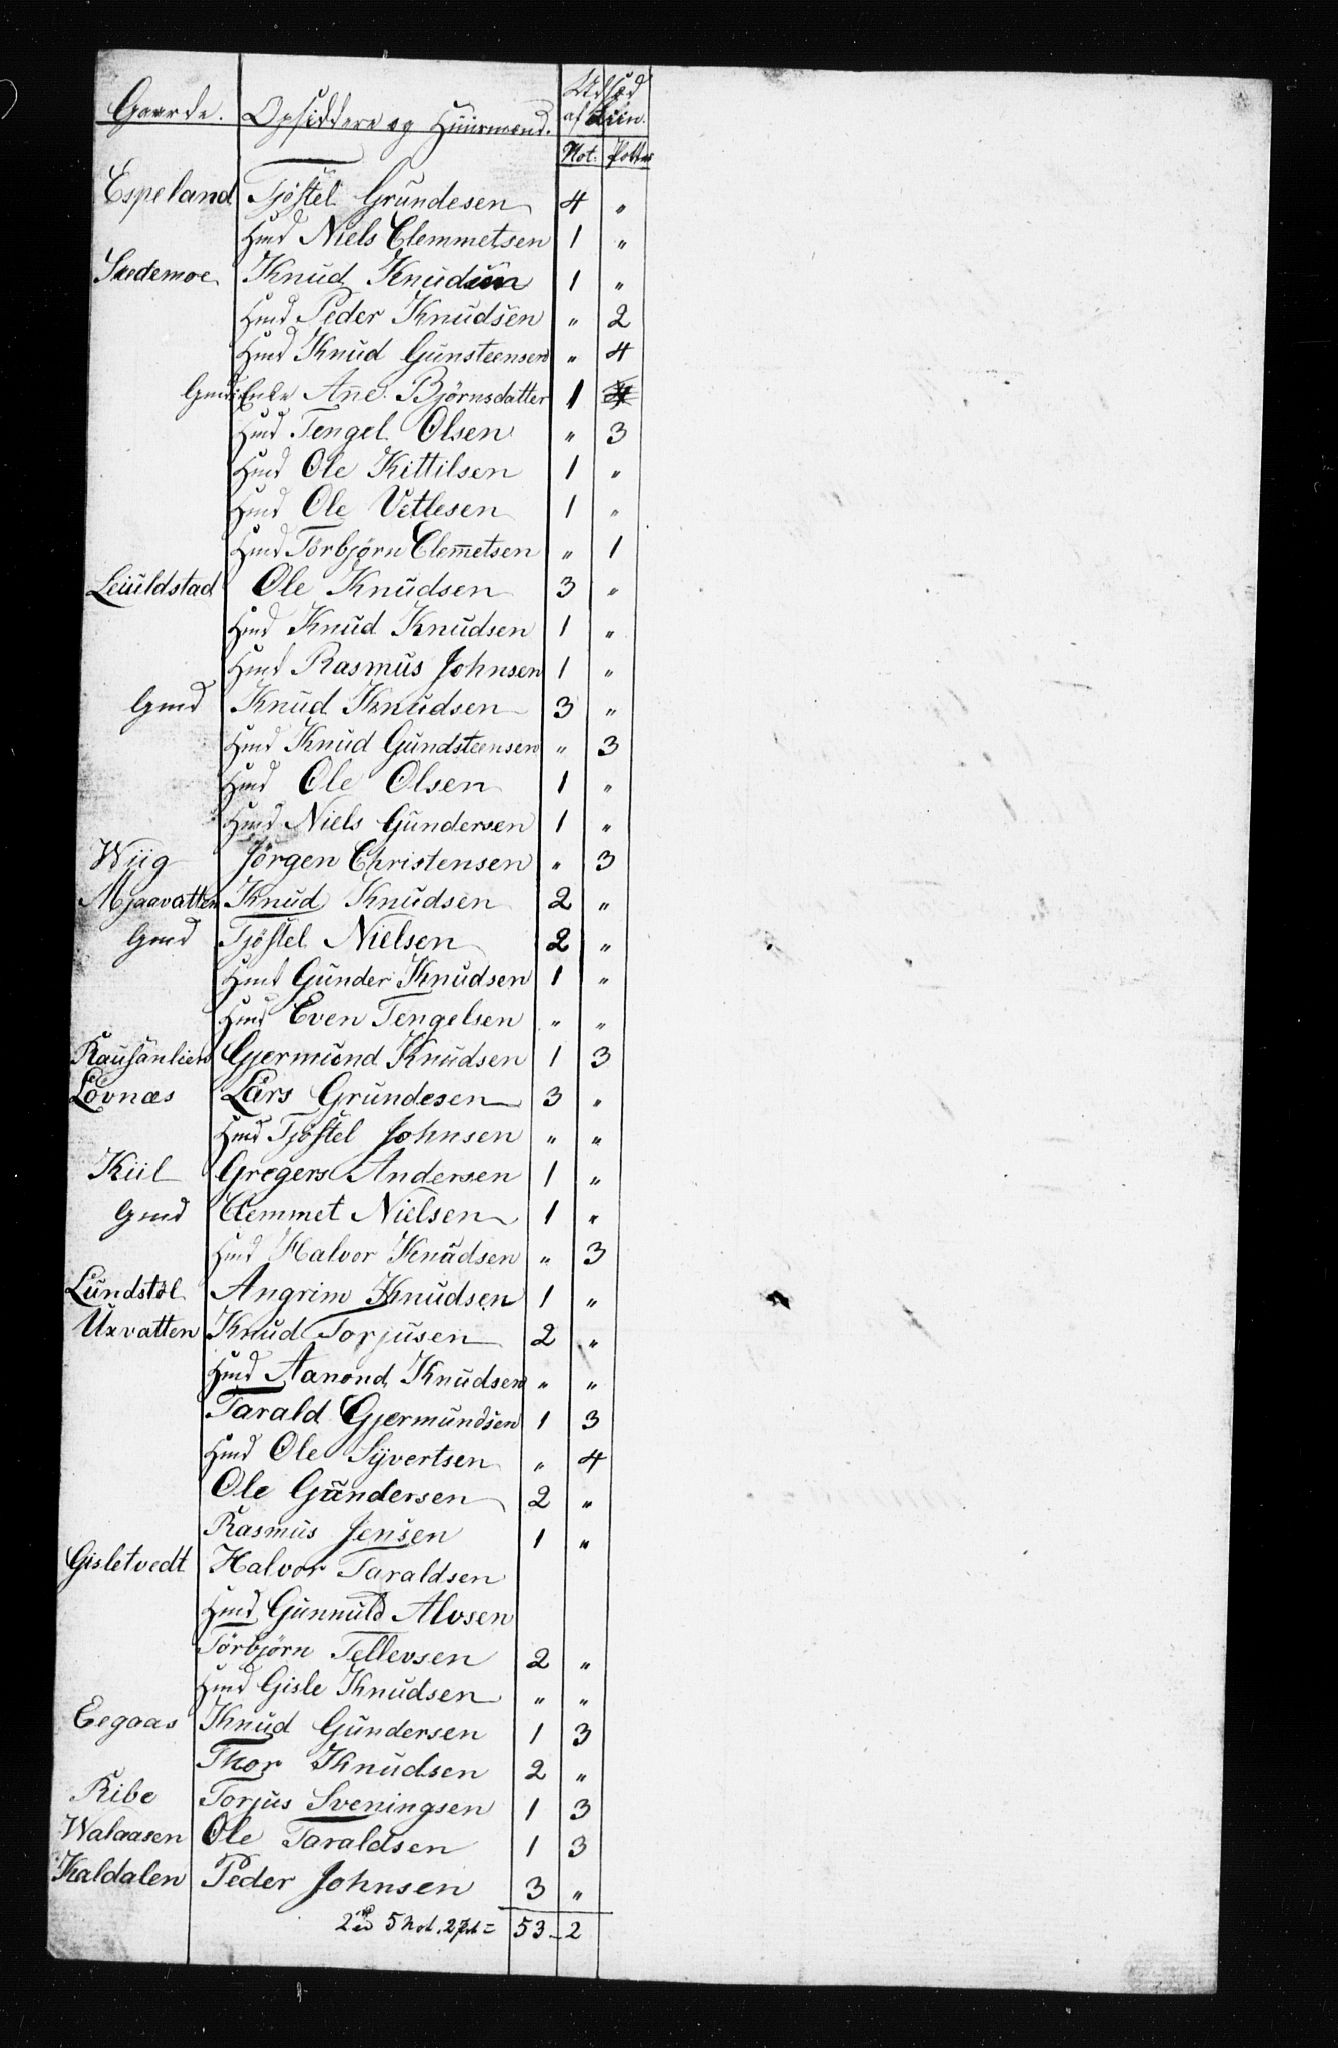 Gaarde. Opsiddere og Huusmænd. Udsæd
af Liin.
Not. Potter
Espeland Tjöstel Grundesen 4 "
Hmd Niels Clemmetsen 1 "
Skedemoe Knud Knudsen 1 "
Hmd Peder Knudsen " 2
Hmd Knud Gunsteensen " 4
Gmd: Enke Ane Björnsdatter 1 4
Hmd Tengel Olsen " 3
Hmd Ole Kittilsen 1 "
Hmd Ole Vetlesen 1 "
Hmd Törbjörn Clem̅etsen " 1
Leiuldstad Ole Knudsen 3 "
Hmd Knud Knudsen 1 "
Hmd Rasmus Johnsen 1 "
Gmd Knud Knudsen 3 "
Hmd Knud Gundsteensen " 3
Hmd Ole Olsen 1 "
Hmd Niels Gundersen 1 "
Wiig Jörgen Christensen " 3
Mjaavatten Knud Knudsen 2 "
Gmd Tjöstel Nielsen 2 "
Hmd Gunder Knudsen 1 "
Hmd Even Tengelsen " "
Rausanlien Gjermund Knudsen 1 3
Lövnæs Lars Grundesen 3 "
Hmd Tjöstel Johnsen " "
Kiil Gregers Andersen 1 "
Gmd Clemmet Nielsen 1 "
Hmd Halvor Knudsen " 3
Lundstöl Angrim Knudsen 1 "
Uxvatten Knud Torjusen 2 "
Hmd Aanond Knudsen " "
Tarald Gjermundsen 1 3
Hmd Ole Syvertsen " 4
Ole Gundersen 2 "
Rasmus Jensen 1 "
Gisletvedt Halvor Taraldsen
Hmd Gunnuld Alvsen
Törbjörn Tellevsen 2 "
Hmd Gisle Knudsen " "
Eegaas Knud Gundersen 1 3
Thor Knudsen 2 "
Ribe Torjus Sveningsen 1 3
Walaasen Ole Taraldsen 1 3
Kaldalen Peder Johnsen 3 "
5 Not. 2 Pot = 53 - 2